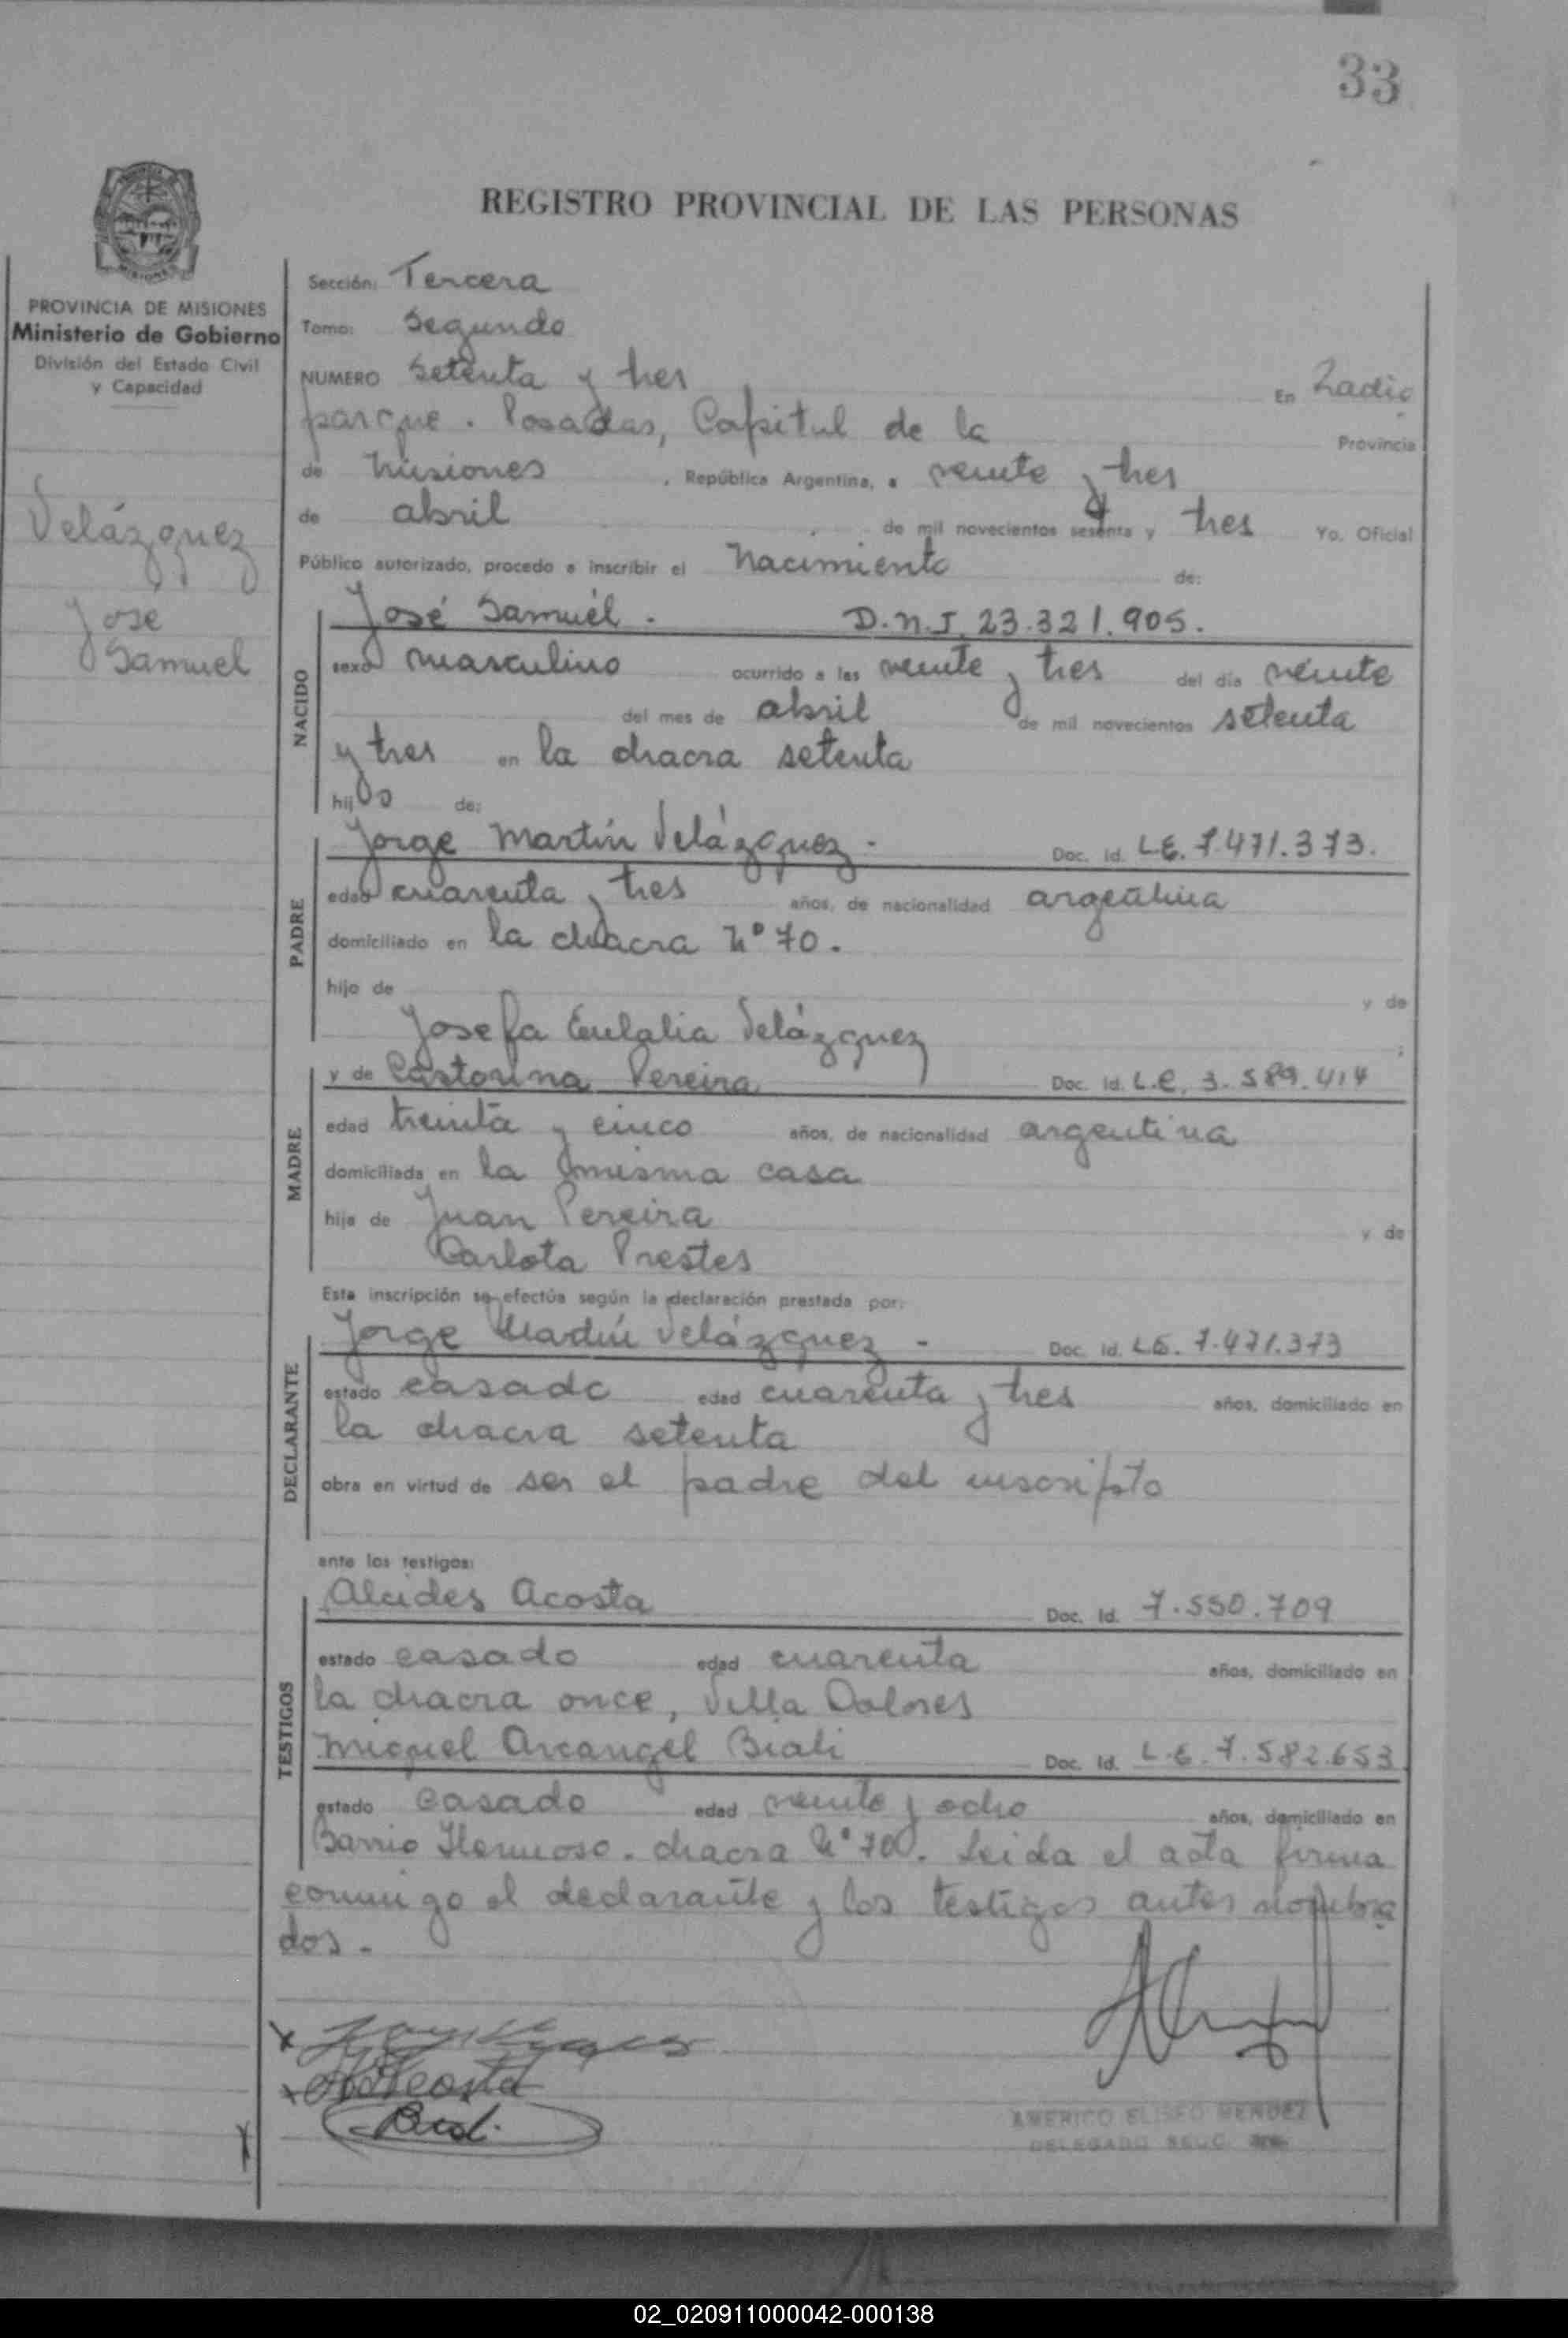 33
REGISTRO PROVINCIAL DE LAS PERSONAS
PROVINCIA DE MISIONES
Ministerio de Gobierno
División del Estado Civil
y Capacidad
Velázquez
José
Samuel
Sección: Tercera
Tomo: Segundo
NUMERO setenta y tres En Radio
parque. Posadas, Capital de la Provincia
de Misiones, República Argentina, a veinte y tres
de abril de mil novecientos sesenta y tres Yo, Oficial
Público autorizado, procedo a inscribir el Nacimiento de:
NACIDO
José Samuel. D.N.I. 23.321.905.
sexo masculino ocurrido a las veinte y tres del día veinte
del mes de abril de mil novecientos setenta
y tres en la chacra setenta
hijo de:
PADRE
Jorge Martín Velázquez - Doc. Id. L.E. 7.471.373.
edad cuarenta y tres años, de nacionalidad argentina
domiciliado en la chacra Nº 70.
hijo de y de
Josefa Eulalia Velázquez
MADRE
y de Castorina Pereira Doc. Id. L.C. 3.589.414
edad treinta y cinco años, de nacionalidad argentina
domiciliada en la misma casa
hija de Juan Pereira y de
Carlota Prestes
Esta inscripción se efectúa según la declaración prestada por:
DECLARANTE
Jorge Martín Velázquez - Doc. Id. L.E. 7.471.373
estado casado edad cuarenta y tres años, domiciliado en
la chacra setenta
obra en virtud de ser el padre del inscripto
ante los testigos:
TESTIGOS
Alcides Acosta Doc. Id. 7.550.709
estado casado edad cuarenta años, domiciliado en
la chacra once, Villa Dolores
Miguel Arcangel Biali Doc. Id. L.E. 7.582.653
estado casado edad veinte y ocho años, domiciliado en
Barrio Hermoso. chacra Nº 70. Leida el acta firma
conmigo el declarante y los testigos antes nombra
dos.-
AMERICO ELISEO MENDEZ
DELEGADO SECC. 3ra.
02_020911000042-000138